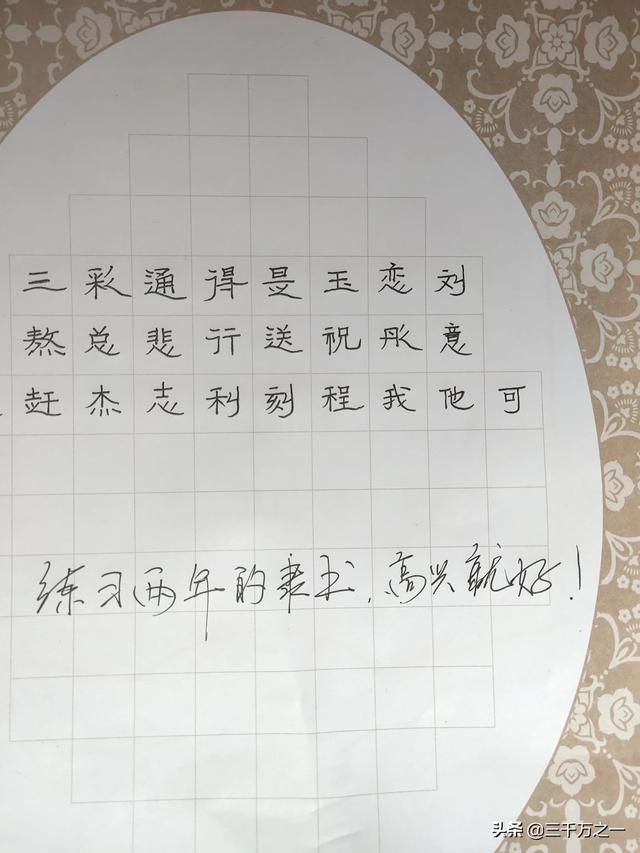 三彩通得是玉恋刘
熬总悲行送祝彤意
赶杰志利刻程我他可
练习两年的隶书,高兴就好!
头条 @三千万之一